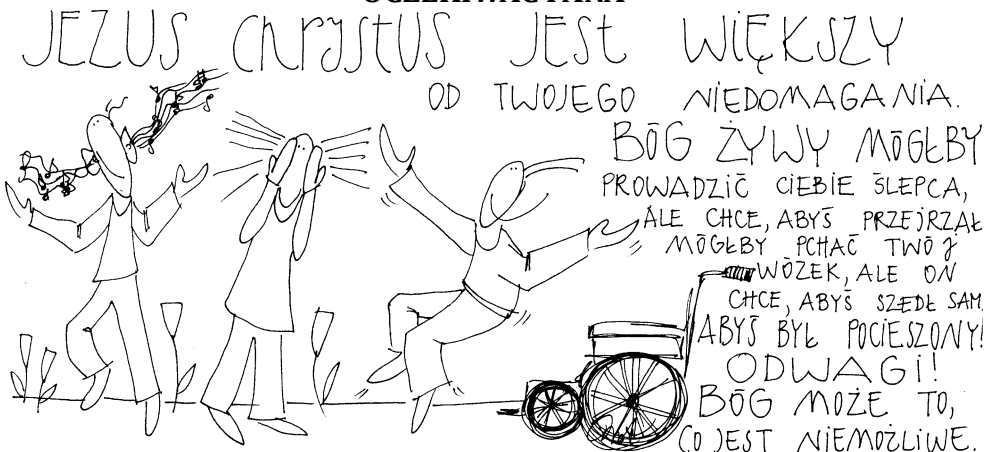 JEZUS CHRYSTUS JEST WIĘKSZY
OD TWOJEGO NIEDOMAGANIA.
BÓG ŻYWY MÓGŁBY
PROWADZIĆ CIEBIE ŚLEPCA,
ALE CHCE, ABYŚ PRZEJRZAŁ
MÓGŁBY PCHAĆ TWÓJ
WÓZEK, ALE ON
CHCE, ABYŚ SZEDŁ SAM,
ABYŚ BYŁ POCIESZONY!
ODWAGI!
BÓG MOŻE TO,
CO JEST NIEMOŻLIWE.